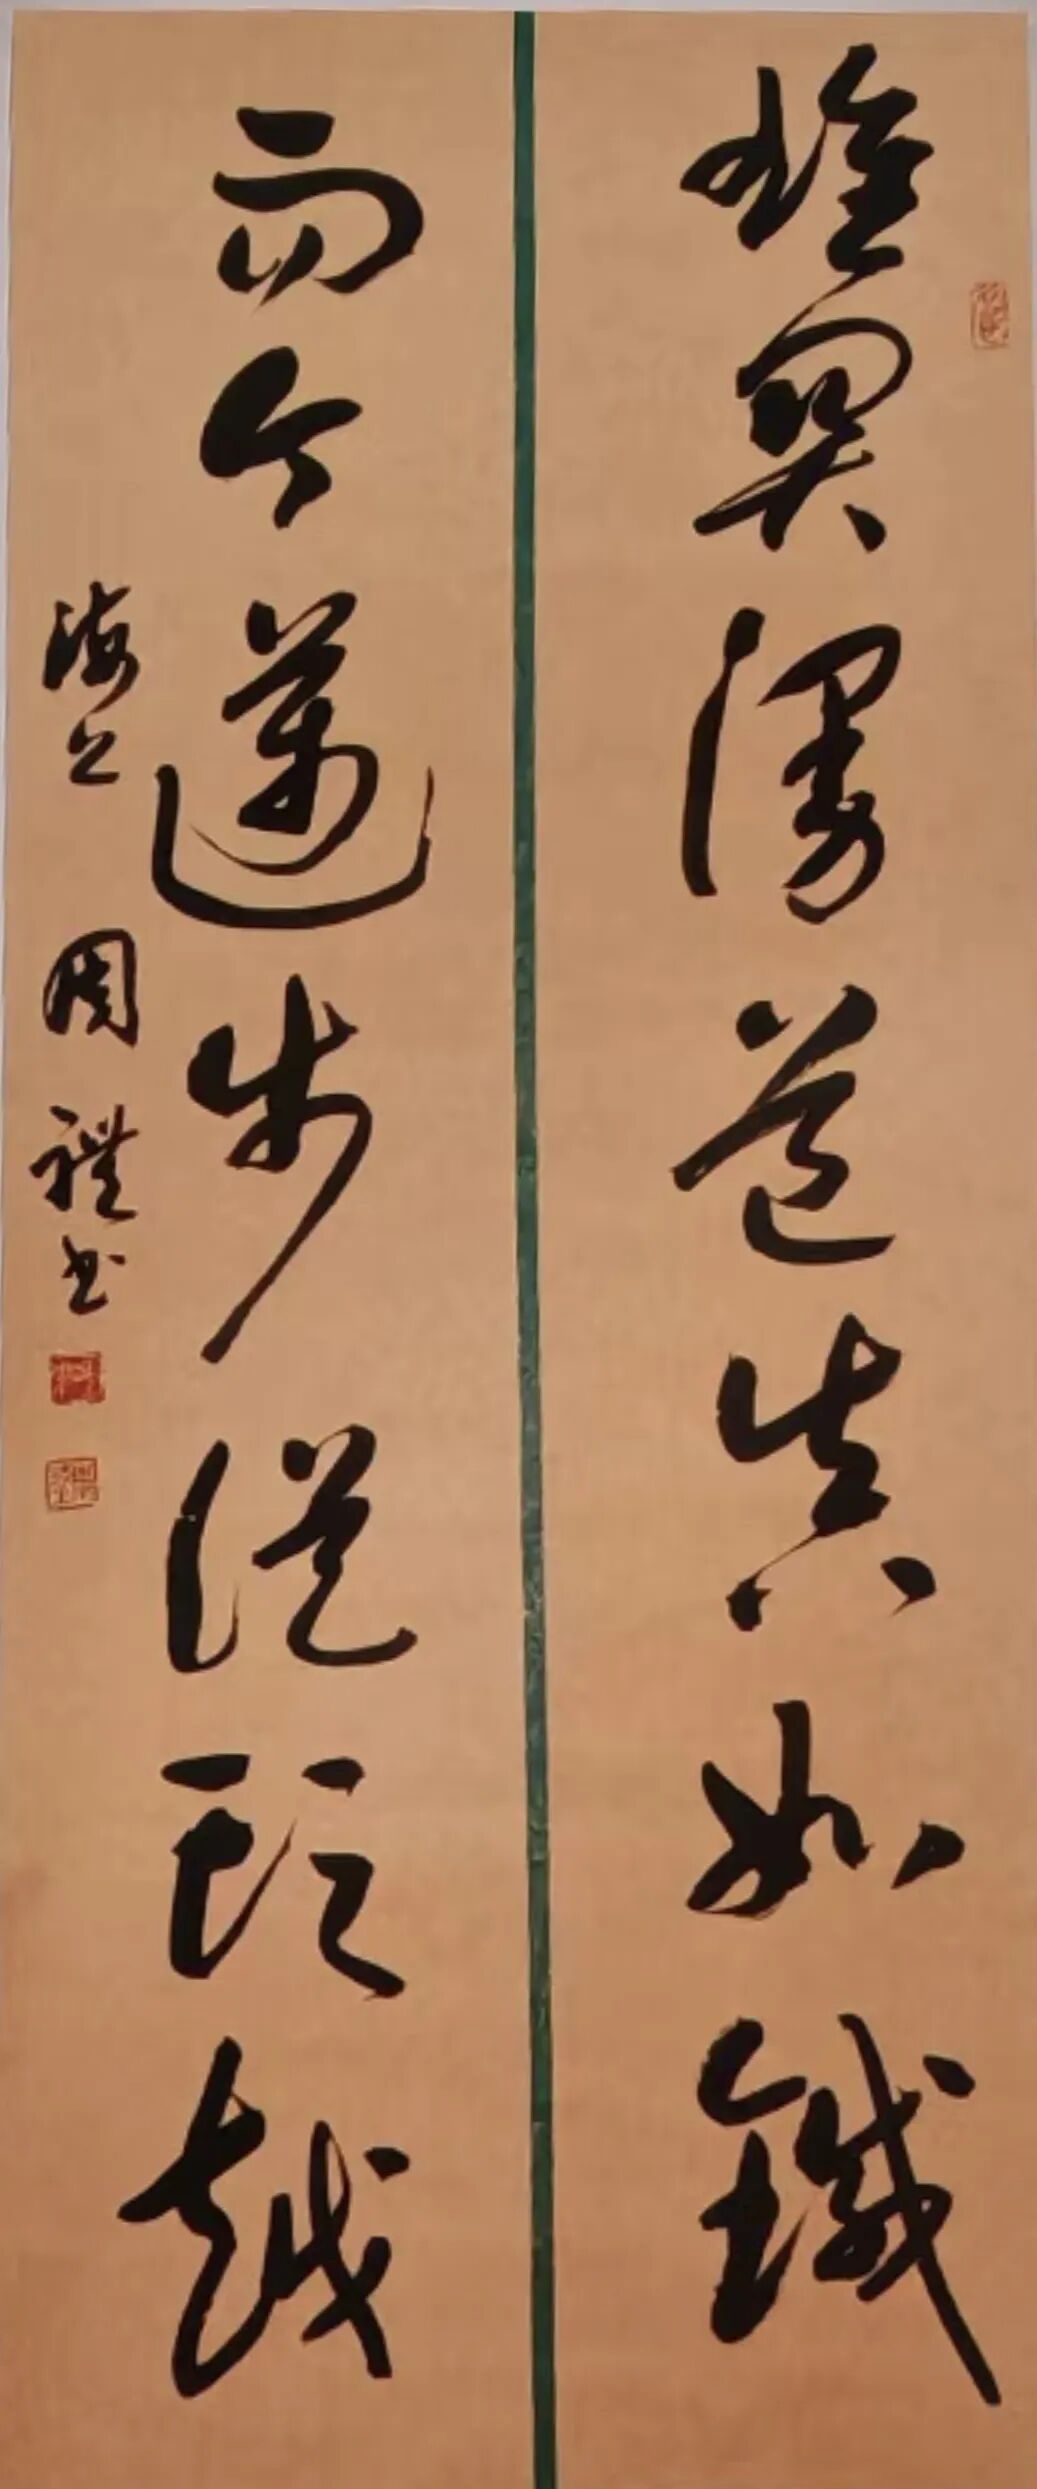 雄関漫道真如鐵
而今邁步從頭越
海上 周禮書